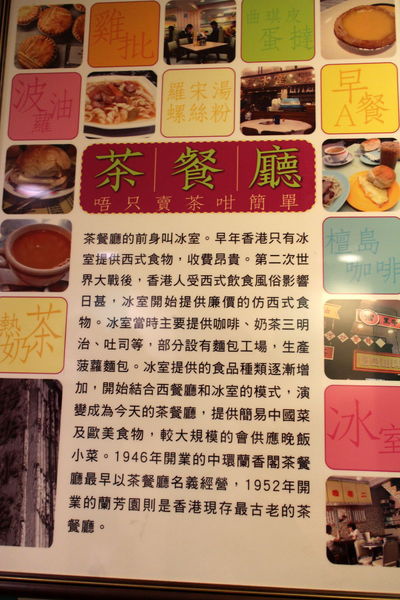 雞批
曲琪皮
蛋撻
波蘿油
羅宋湯
螺絲粉
早
A餐
茶餐廳
唔只賣茶咁簡單
檀島
咖啡
奶茶
冰室
茶餐廳的前身叫冰室。早年香港只有冰
室提供西式食物，收費昂貴。第二次世
界大戰後，香港人受西式飲食風俗影響
日甚，冰室開始提供廉價的仿西式食
物。冰室當時主要提供咖啡、奶茶三明
治、吐司等，部分設有麵包工場，生產
菠蘿麵包。冰室提供的食品種類逐漸增
加，開始結合西餐廳和冰室的模式，演
變成為今天的茶餐廳，提供簡易中國菜
及歐美食物，較大規模的會供應晚飯
小菜。1946年開業的中環蘭香閣茶餐
廳最早以茶餐廳名義經營，1952年開
業的蘭芳園則是香港現存最古老的茶
餐廳。